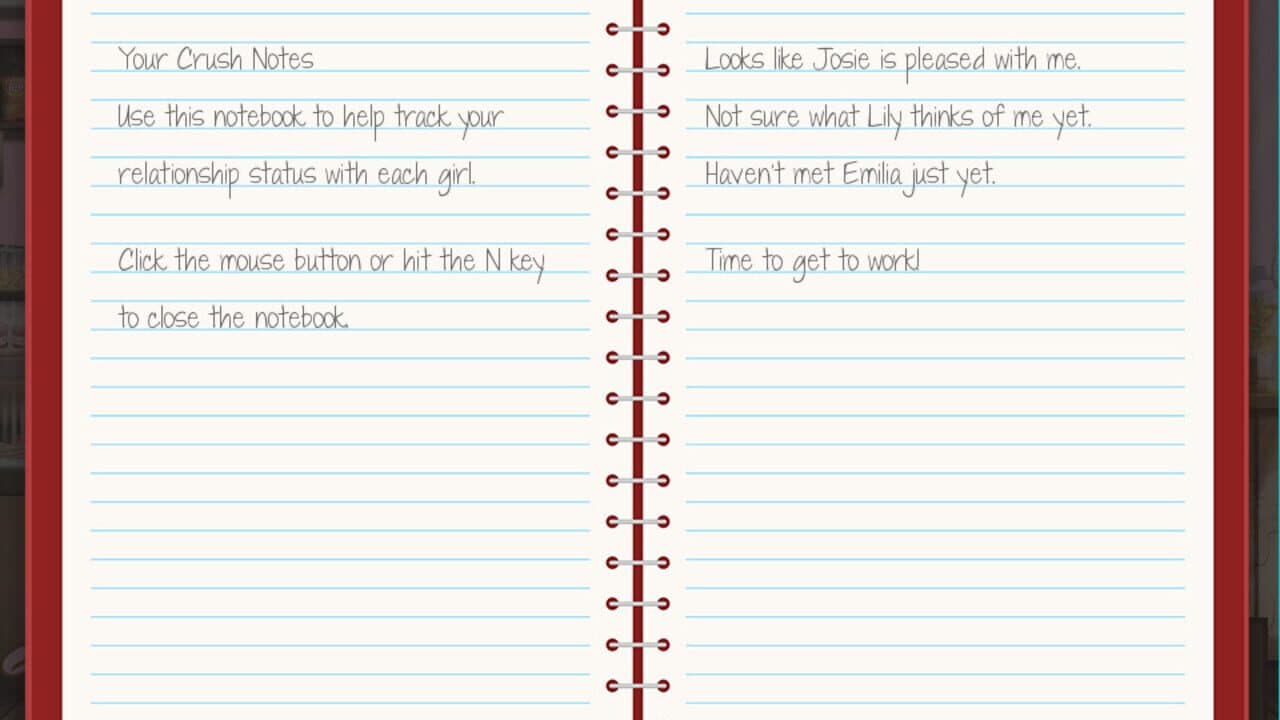 Your Crush Notes
Use this notebook to help track your
relationship status with each girl.
Click the mouse button or hit the N key
to close the notebook.
Looks like Josie is pleased with me.
Not sure what Lily thinks of me yet.
Haven't met Emilia just yet.
Time to get to work!